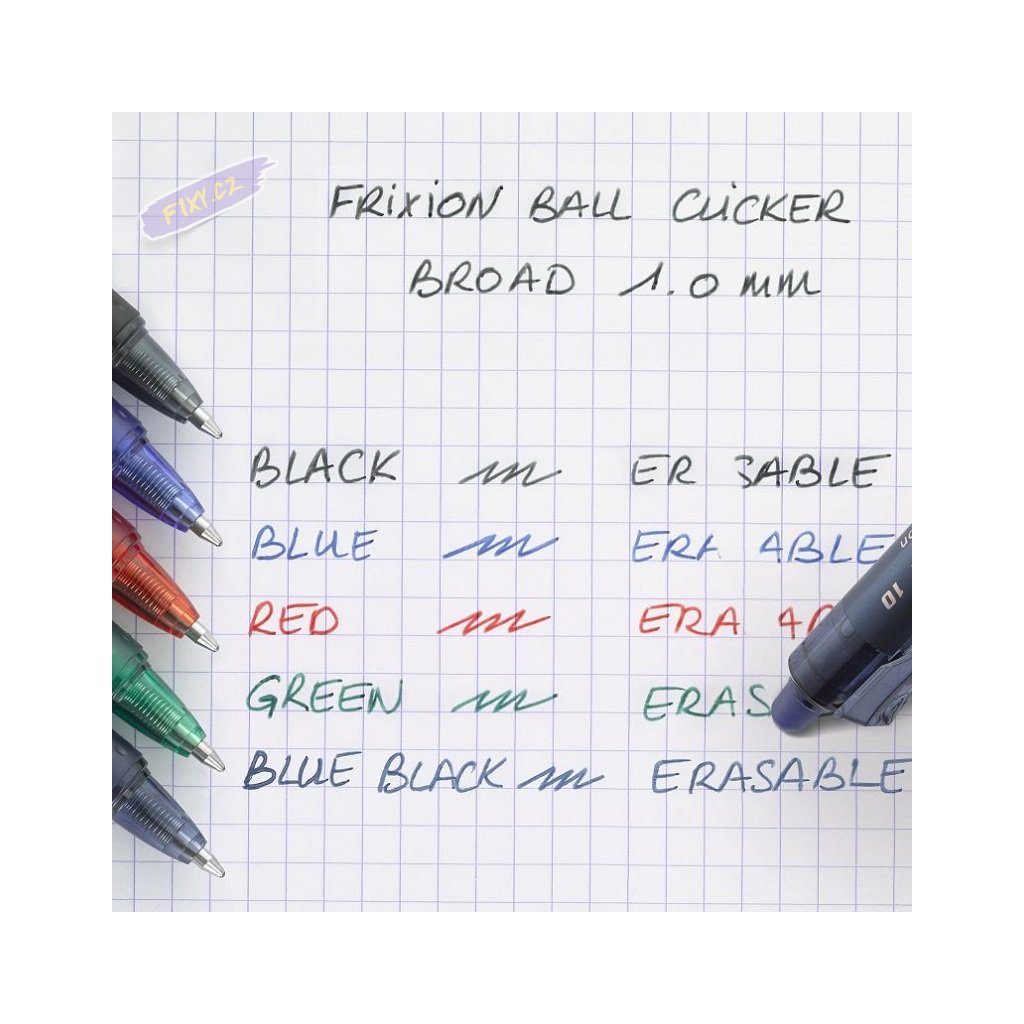 FIXY.CZ
FRiXiON BALL CLiCKER
BROAD 1.0 mm
BLACK ER ABLE
BLUE ERA ABLE
RED ERA A
GREEN ERAS
BLUE BLACK ERASABLE
on
10